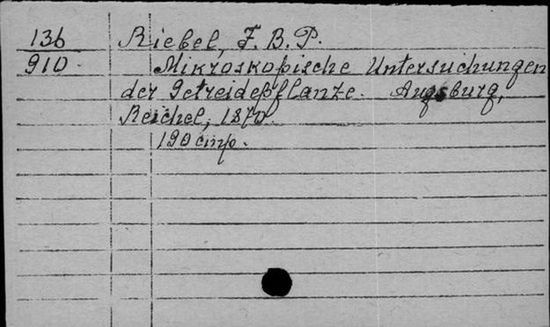 136 Riebel, F. B. P.
910 Mikroskopische Untersuchungen
der Getreidepflanze. Augsburg,
Reichel, 1870.
190 стр.